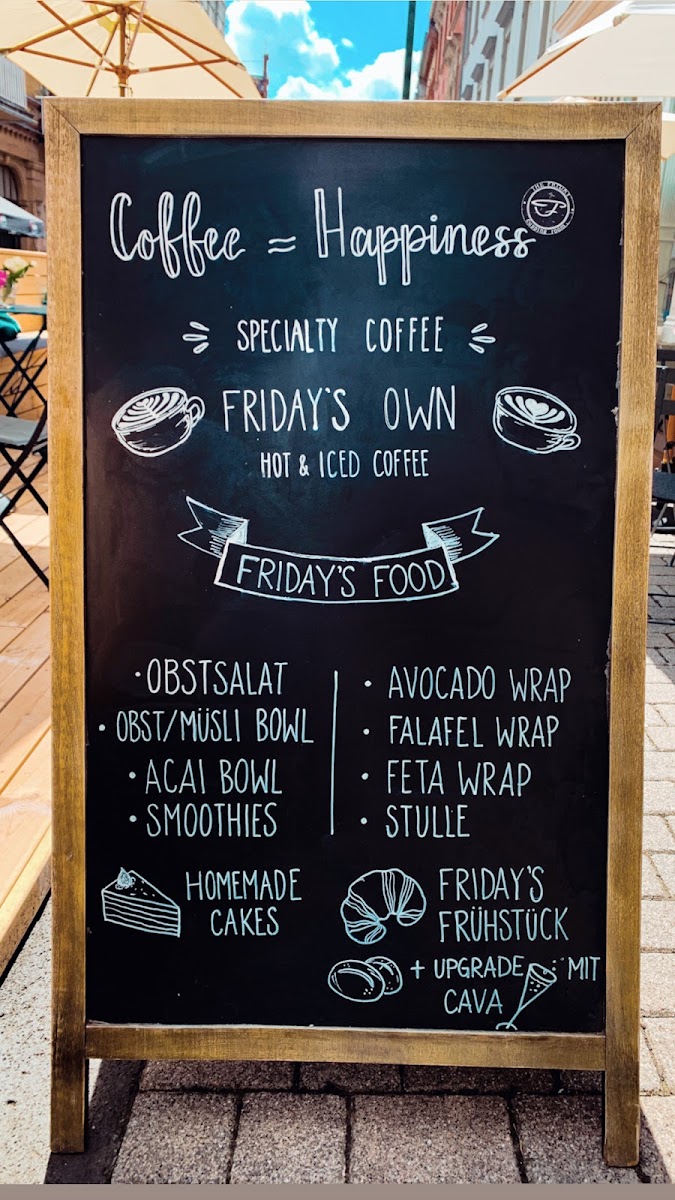 Coffee = Happiness
SPECIALTY COFFEE
FRIDAY'S OWN
HOT & ICED COFFEE
FRIDAY'S FOOD
• OBSTSALAT
• OBST/MÜSLI BOWL
• ACAI BOWL
• SMOOTHIES
• AVOCADO WRAP
• FALAFEL WRAP
• FETA WRAP
• STULLE
HOMEMADE
CAKES
FRIDAY'S
FRÜHSTÜCK
+ UPGRADE MIT
CAVA